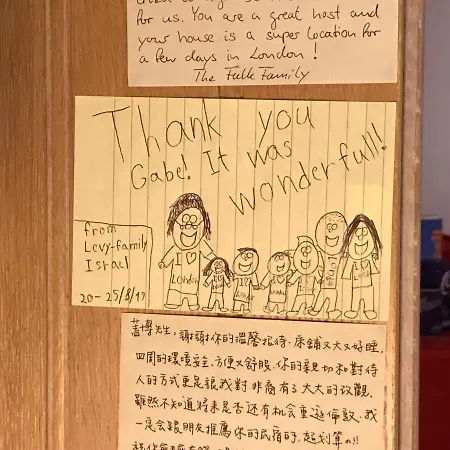 for us. You are a great host and
your house is a super location for
a few days in London!
The Falk Family
Thank you
Gabe! It was
wonderfull!
from
Levy-family
Israel
20-25/8/17
I ♡
London
蓋博先生,謝謝你的溫馨招待,床舖又大又好睡,
四周的環境安全、方便又舒服,你的親切和對待
人的方式更是讓我對非裔有了大大的改觀,
雖然不知道將來是否還有机会重遊倫敦,我
一定会跟朋友推薦你的民宿的,超划算の!!